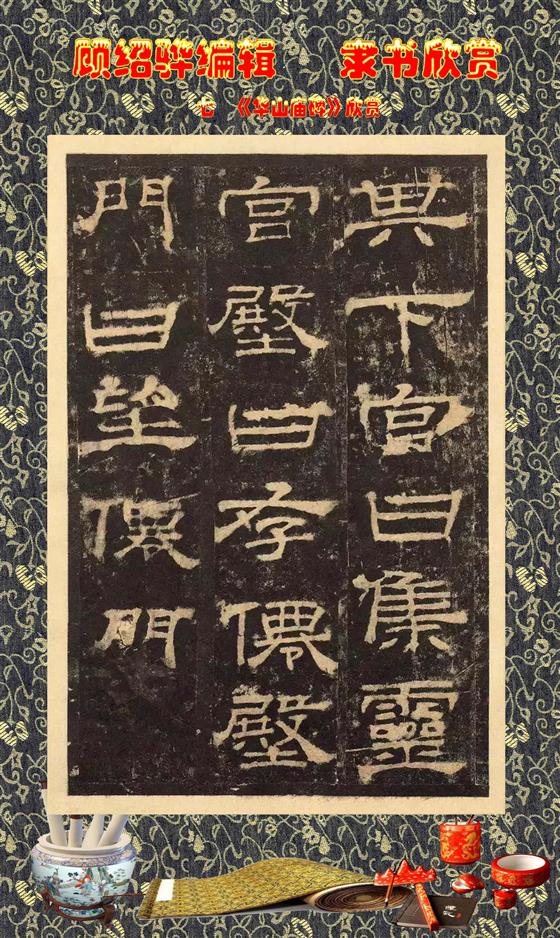 顾绍骅编辑 隶书欣赏
《华山庙碑》欣赏
其下宮曰集靈
宮殿曰存僊殿
門曰望僊門